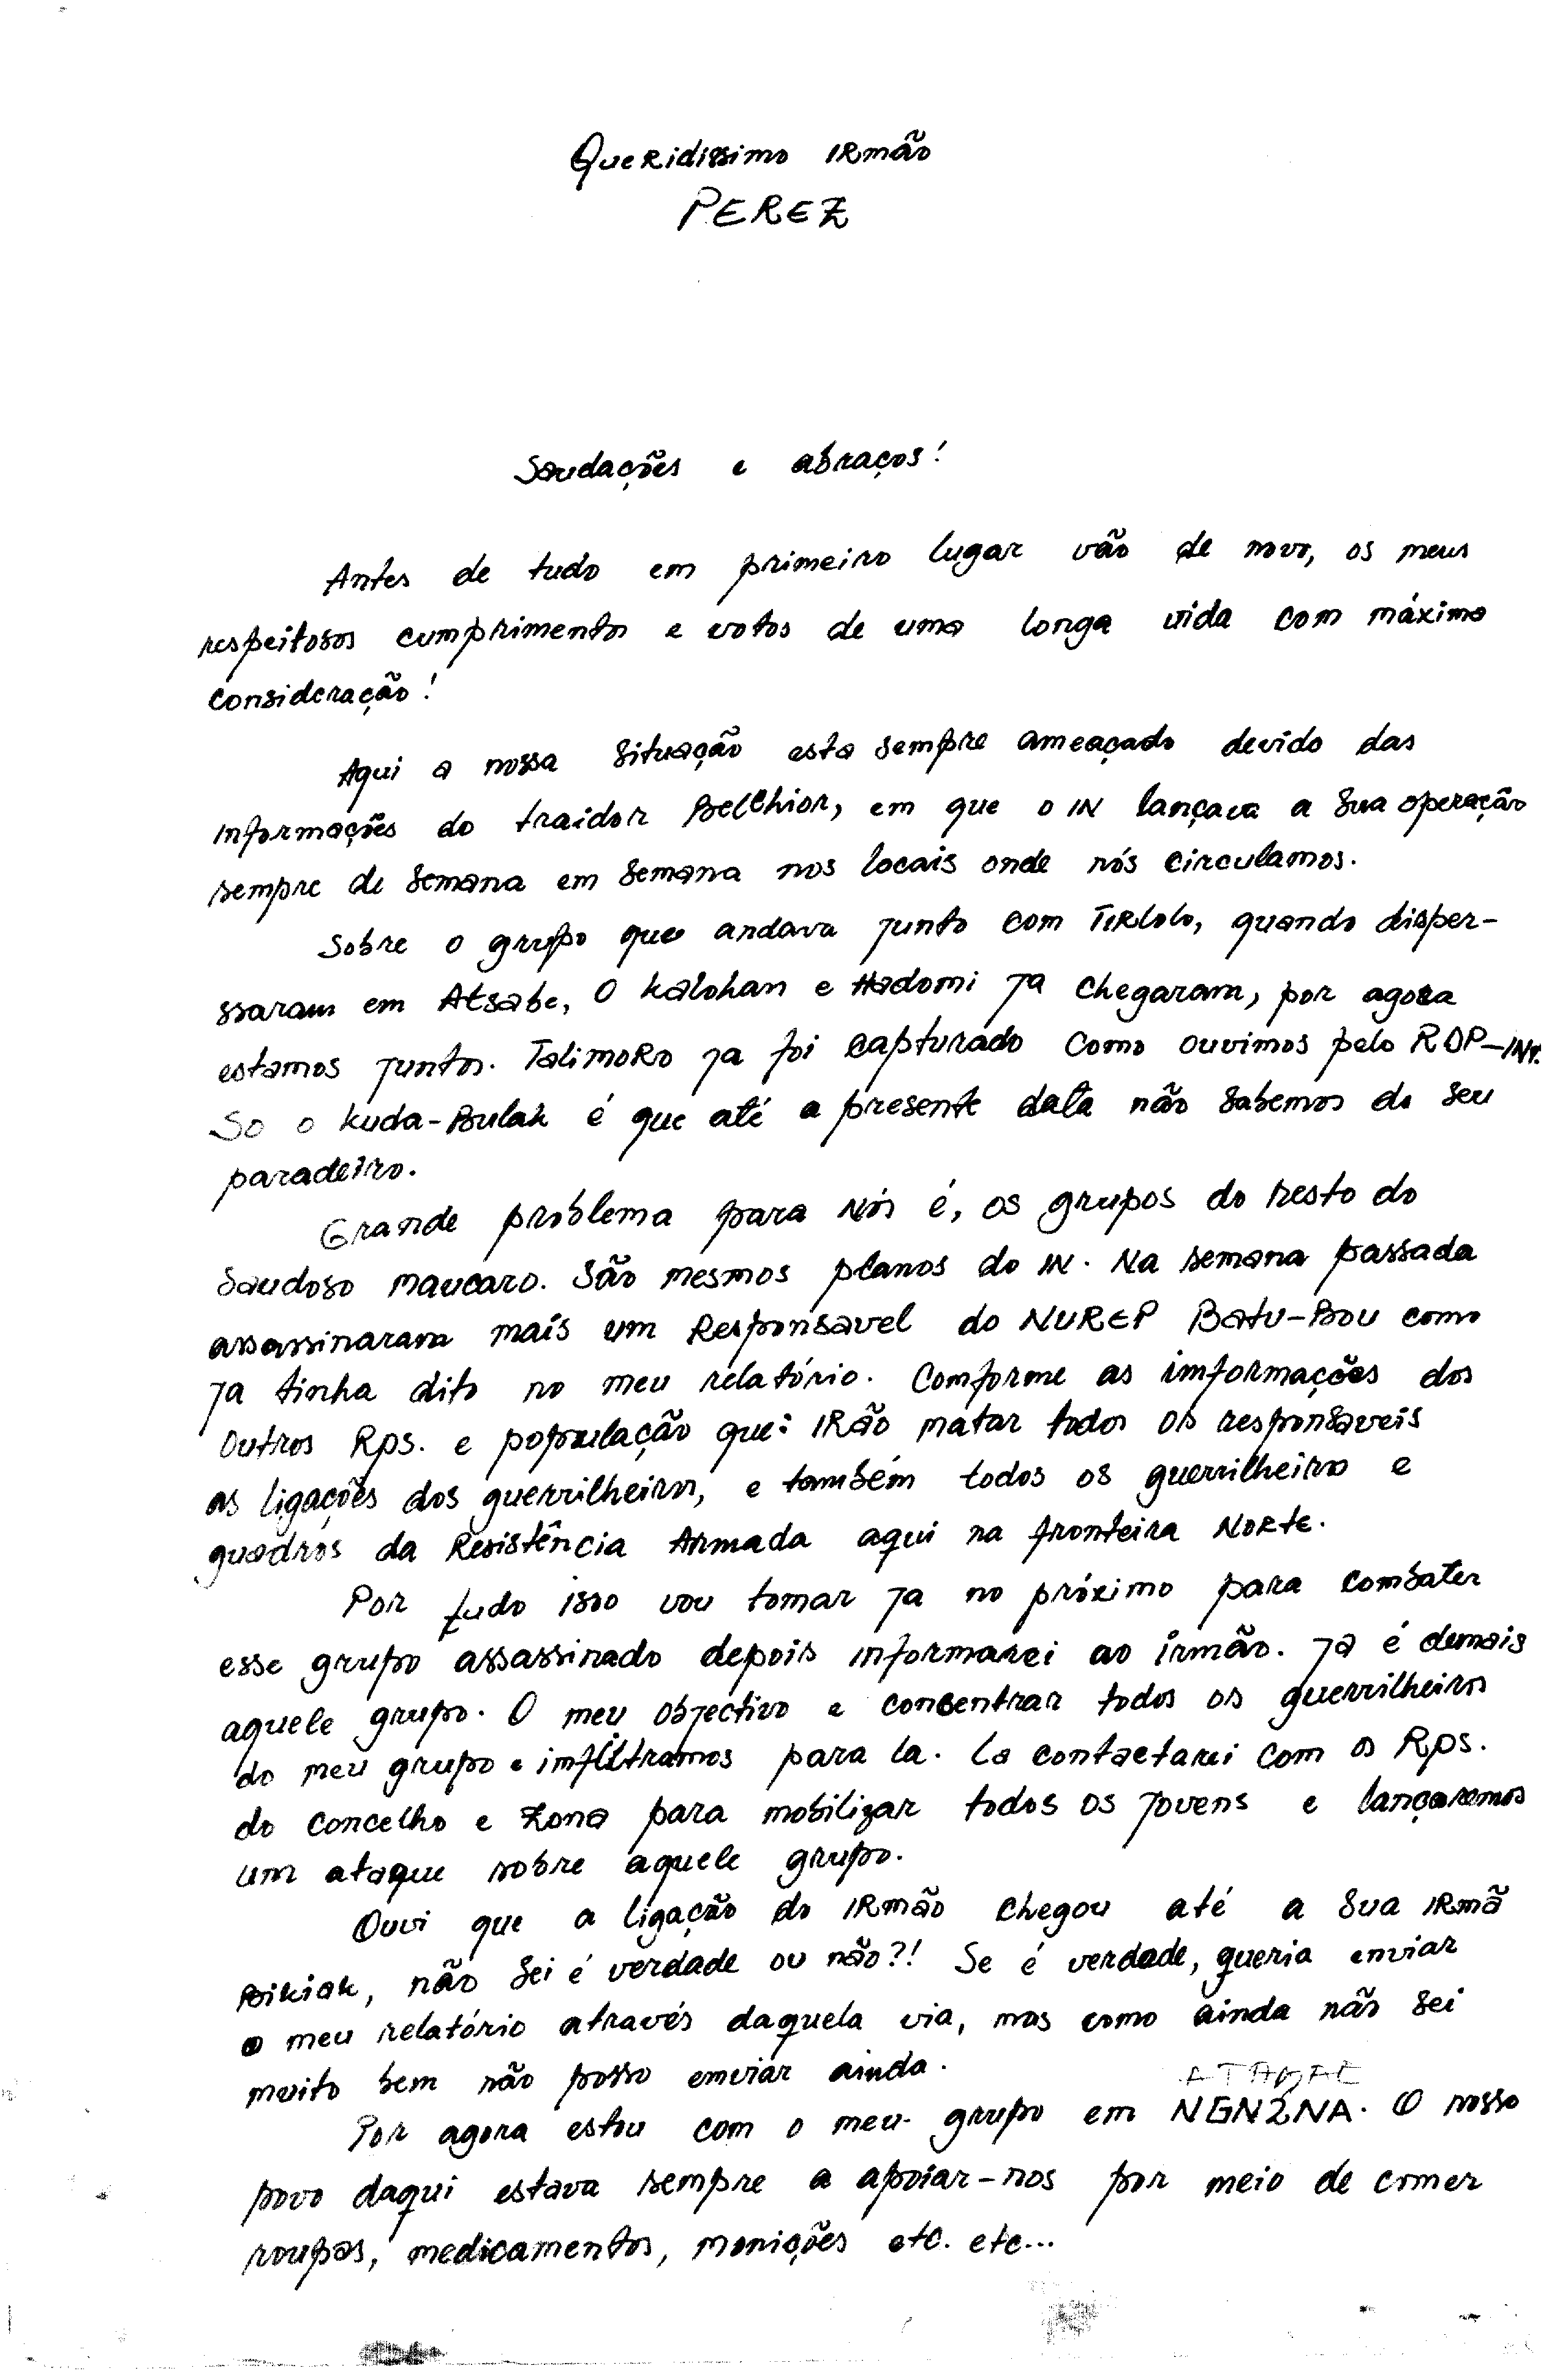 Queridissimo IRmão
PEREZ
Saudações e abraços!
Antes de tudo em primeiro lugar vão de novo, os meus
respeitosos cumprimentos e votos de uma longa vida com máxima
consideração!
Aqui a nossa situação esta sempre ameaçado devido das
informações do traidor Belchior, em que o IN lançava a sua operação
sempre de semana em semana nos locais onde nós circulamos.
Sobre o grupo que andava junto com TiRloLo, quando disper-
ssaram em Atsabe, O kalohan e Hadomi ja chegaram, por agora
estamos juntos. TalimoRo ja foi capturado como ouvimos pelo RDP-INT.
So o kuda-Bulak é que até a presente data não sabemos do seu
paradeiro.
Grande problema para Nós é, os grupos do resto do
saudoso maucaro. São mesmos planos do IN. Na semana passada
assassinaram mais um Responsavel do NUREP Batu-Bou como
ja tinha dito no meu relatório. Comforme as imformações dos
outros Rps. e população que: IRão matar todos os responsaveis
as ligações dos guerrilheiros, e também todos os guerrilheiros e
quadros da Resistência Armada aqui na fronteira Norte.
Por tudo isso vou tomar ja no próximo para combater
esse grupo assassinado depois informarei ao irmão. Ja é demais
aquele grupo. O meu objectivo e consentrar todos os guerrilheiros
do meu grupo e imfiltramos para la. La contactarei com os Rps.
do concelho e zona para mobilizar todos os jovens e lançaremos
um ataque sobre aquele grupo.
Ouvi que a ligação do IRmão chegou até a sua IRmã
Bikiak, não sei é verdade ou não?! Se é verdade, queria enviar
o meu relatório através daquela via, mas como ainda não sei
muito bem não posso emviar ainda.
Por agora estou com o meu grupo em NGN2NA. O nosso
povo daqui estava sempre a apoiar-nos por meio de comer
roupas, medicamentos, monições etc. etc...